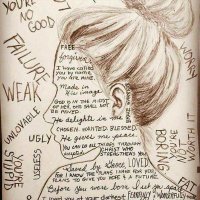 YOU'RE
NO
GOOD
FAILURE
WEAK
UNLOVABLE
UGLY
USELESS
YOU'RE
STUPID
WORRY
NOT
WORTH IT
BORING
FAT
FREE
forgiven
I have called
you by name
you are mine.
Made in
His image
GOD IS IN THE MIDST
OF HER, SHE SHALL NOT
BE MOVED.
He delights in me
CHOSEN. WANTED. BLESSED.
He gives me peace.
YOU CAN DO ALL THINGS THROUGH
CHRIST WHO
STRENGTHENS YOU
Saved by Grace. LOVED
FOR I KNOW THE PLANS I HAVE FOR YOU
PLANS TO GIVE YOU HOPE & A FUTURE.
Before you were born I set you apart
I loved you at your darkest
FEARFULLY & WONDERFULLY